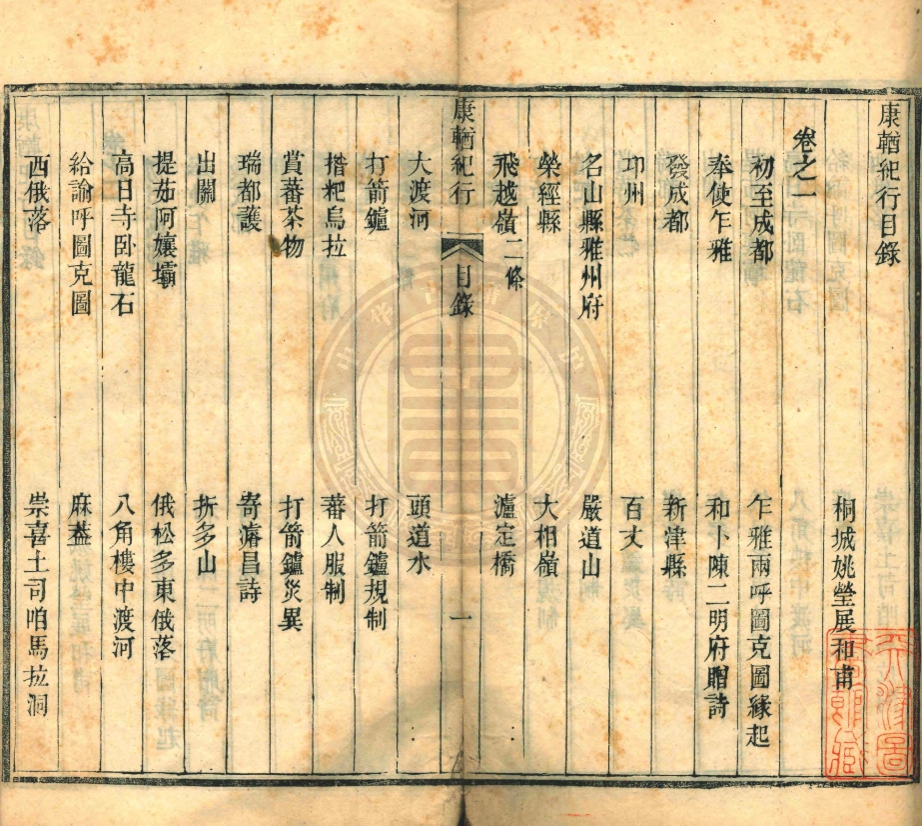 康輶紀行目錄
桐城姚瑩展和甫
卷之一
初至成都 乍雅兩呼圖克圖緣起
奉使乍雅 和卜陳二明府贈詩
發成都 新津縣
卭州 百丈
名山縣雅州府 嚴道山
榮經縣 大相嶺
飛越嶺二條 瀘定橋
康輶紀行 目錄 一
大渡河 頭道水
打箭鑪 打箭鑪規制
揝粑烏拉 蕃人服制
賞蕃茶物 打箭鑪災異
瑞都護 寄濬昌詩
出關 折多山
提茹阿孃壩 俄松多東俄落
高日寺卧龍石 八角樓中渡河
給諭呼圖克圖 麻葢
西俄落 崇喜土司咱馬拉洞